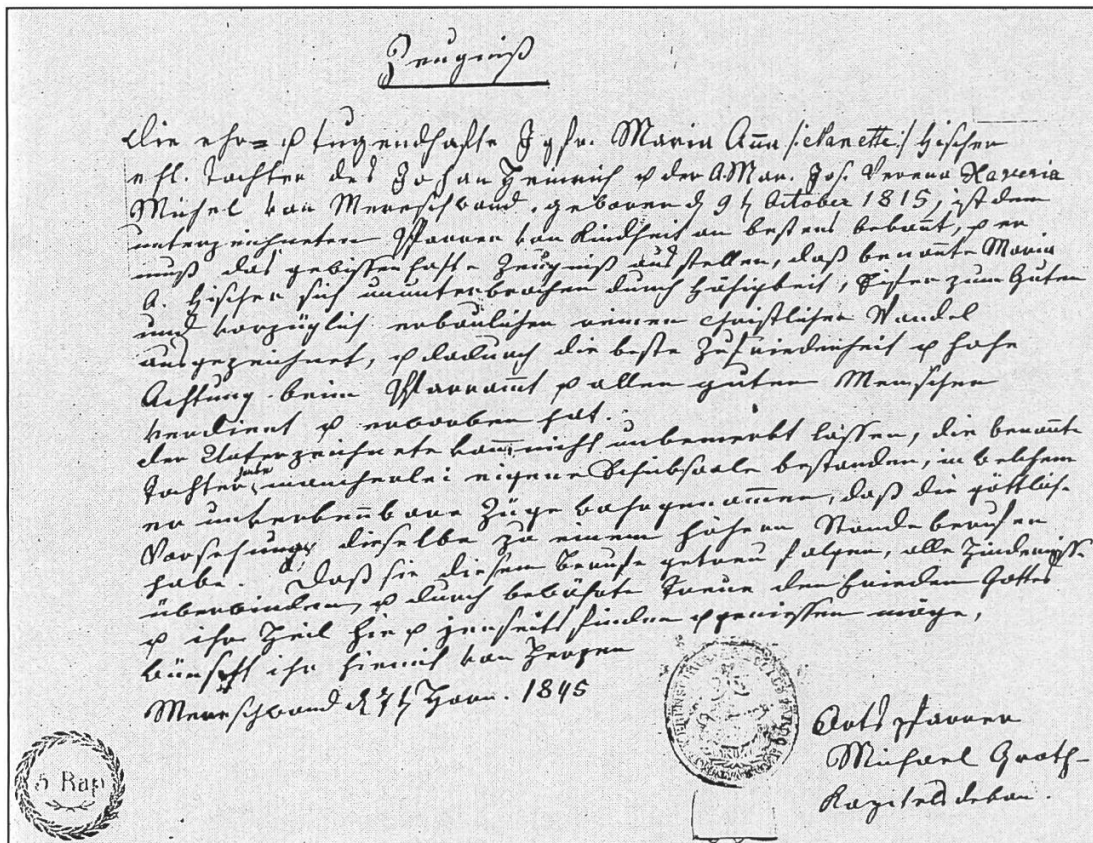 Zeugniß
Die ehr= u tugendhafte Jgfr. Maria Aña /:Nanette:/ Fischer
ehl. Tochter des Johan Heinrich u der A. Mar. Jos. Verena Xaveria
Michel von Merenschwand, geboren d 9t October 1815, ist dem
unterzeichneten Pfarrer von Kindheit an bestens bekannt, u er
muß das gewissenhafte Zeugniß ausstellen, daß benannte Maria
A. Fischer sich ununterbrochen durch Fähigkeit, Eifer zum Guten
und vorzüglich erbaulichen reinen christlichen Wandel
ausgezeichnet, u dadurch die beste Zufriedenheit u hohe
Achtung beim Pfarramt u allen guten Menschen
verdient u erworben hat.
Der Unterzeichnete kann nicht unbemerkt lassen, die benannte
Tochter habe mancherlei eigene Schiksaale bestanden, in welchem
er unverkennbare Züge wahrgenommen, daß die göttlich.
Vorsehung dieselbe zu einem höhern Stande berufen
habe. Daß sie diesem Berufe getreu folgen, alle Hinderniße
überwinden, u durch bewährte Treue den Frieden Gottes
u ihr Heil hier u jenseits finden u geniessen möge,
wünscht ihr hiemit von Herzen
Merenschwand d 7t Horn. 1845
Orts Pfarrer
Michael Groth
Kapitelsdekan.
5 Rap